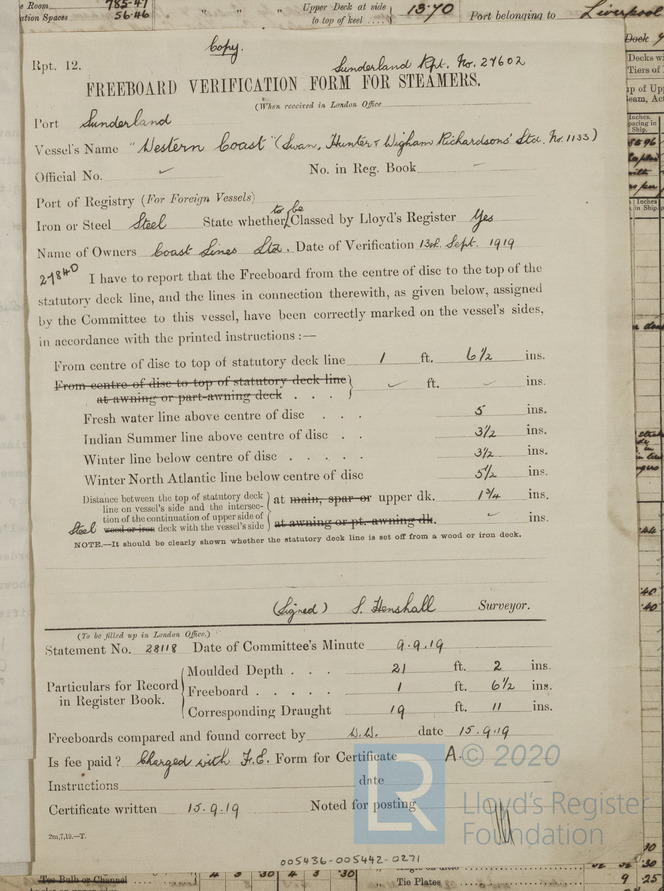 e Room 785.47
ation Spaces 56.46
Upper Deck at side
to top of keel .... } 13.70 Port belonging to Liverpool
Copy.
Rpt. 12. Sunderland Rpt. No. 27602
FREEBOARD VERIFICATION FORM FOR STEAMERS.
(When received in London Office
Port Sunderland
Vessel's Name "Western Coast" (Swan, Hunter & Wigham Richardsons' Std. No. 1133)
Official No. ✓ No. in Reg. Book –
Port of Registry (For Foreign Vessels)
Iron or Steel Steel State whether to be Classed by Lloyd's Register Yes
Name of Owners Coast Lines Ltd. Date of Verification 13th. Sept. 1919
27840 I have to report that the Freeboard from the centre of disc to the top of the
statutory deck line, and the lines in connection therewith, as given below, assigned
by the Committee to this vessel, have been correctly marked on the vessel's sides,
in accordance with the printed instructions :—
From centre of disc to top of statutory deck line 1 ft. 6½ ins.
From centre of disc to top of statutory deck line } ✓ ft. ✓ ins.
at awning or part-awning deck . . .
Fresh water line above centre of disc . . . 5 ins.
Indian Summer line above centre of disc . . 3½ ins.
Winter line below centre of disc . . . . . 3½ ins.
Winter North Atlantic line below centre of disc 5½ ins.
Distance between the top of statutory deck
line on vessel's side and the intersec- } at main, spar or upper dk. 1¾ ins.
tion of the continuation of upper side of
Steel wood or iron deck with the vessel's side } at awning or pt. awning dk. ✓ ins.
NOTE.—It should be clearly shown whether the statutory deck line is set off from a wood or iron deck.
(Signed) S. Henshall Surveyor.
(To be filled up in London Office.)
Statement No. 28118 Date of Committee's Minute 9.9.19
Moulded Depth . . . 21 ft. 2 ins.
Particulars for Record { Freeboard . . . . . 1 ft. 6½ ins.
in Register Book.
Corresponding Draught 19 ft. 11 ins.
Freeboards compared and found correct by W.W. date 15.9.19
Is fee paid? Charged with F.E. Form for Certificate A.
Instructions date
Certificate written 15.9.19 Noted for posting
2m,7,19.—T.
LR © 2020
Lloyd's Register
Foundation
005436-005442-0271
Tee Bulb or Channel 4 3 .30 4 3 .30
Tie Plates 9 .25